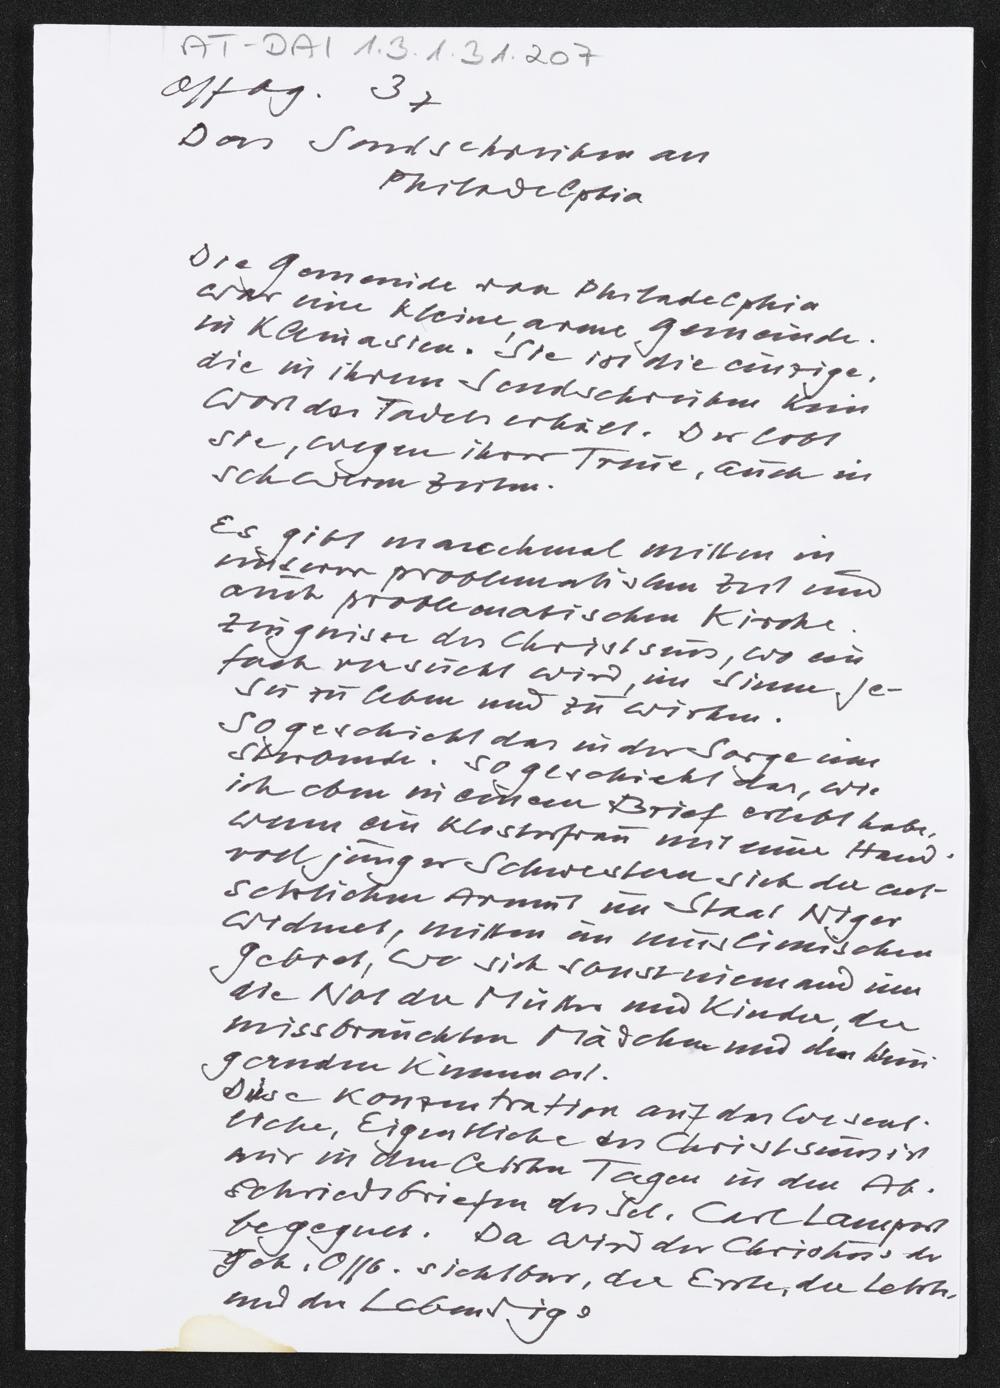 AT-DAI 1.3.1.31.207
Offbg. 3,7
Das Sendschreiben an
Philadelphia
Die Gemeinde von Philadelphia
war eine kleine, arme Gemeinde.
in Kleinasien. Sie ist die einzige,
die in ihrem Sendschreiben kein
Wort des Tadels erhält. Der lobt
sie, wegen ihrer Treue, auch in
schweren Zeiten.
Es gibt manchmal mitten in
unserer problematischen Zeit und
auch problematischen Kirche.
Zeugnisse des Christseins, wo ein
fach versucht wird, im Sinne Je-
su zu leben und zu wirken.
So geschieht das in der Sorge um
Sterbende. So geschieht das, wie
ich eben in einem Brief erlebt habe,
wenn ein Klosterfrau mit einer Hand
voll junger Schwestern sich der ent-
setzlichen Armut im Staat Niger
widmet, mitten im muslimischen
Gebiet, wo sich sonst niemand um
die Not der Mütter und Kinder, der
missbrauchten Mädchen und den hun
gernden Kümmert.
Diese Konzentration auf das Wesent-
liche, Eigentliche des Christseins ist
mir in den letzten Tagen in den Ab-
schiedsbriefen des sel. Carl Lampert
begegnet. Da wird der Christus der
Geh. Offb. sichtbar, der Erste, der Letzte,
und der Lebendige